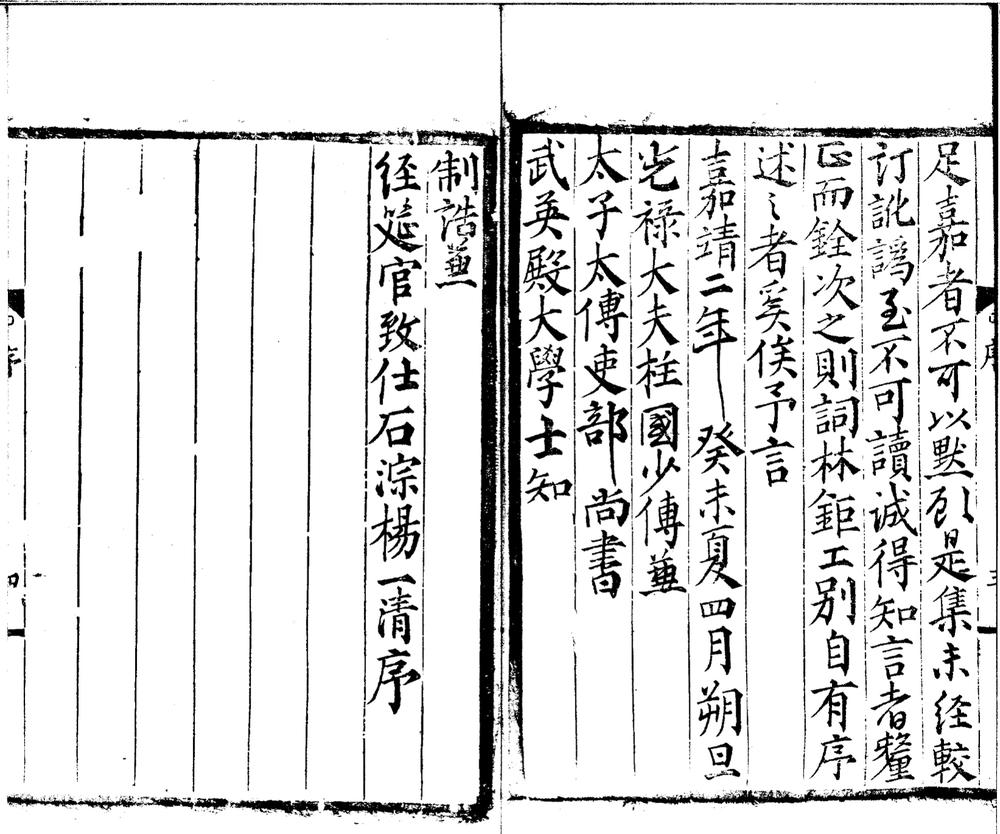 足嘉者不可以默顧是集未経較
訂訛譌至不可讀誠得知言者釐
正而銓次之則詞林鉅工別自有序
述之者奚俟予言
嘉靖二年癸未夏四月朔旦
光祿大夫柱國少傅兼
太子太傅吏部尚書
武英殿大學士知
制誥兼
経筵官致仕石淙楊一清序
序